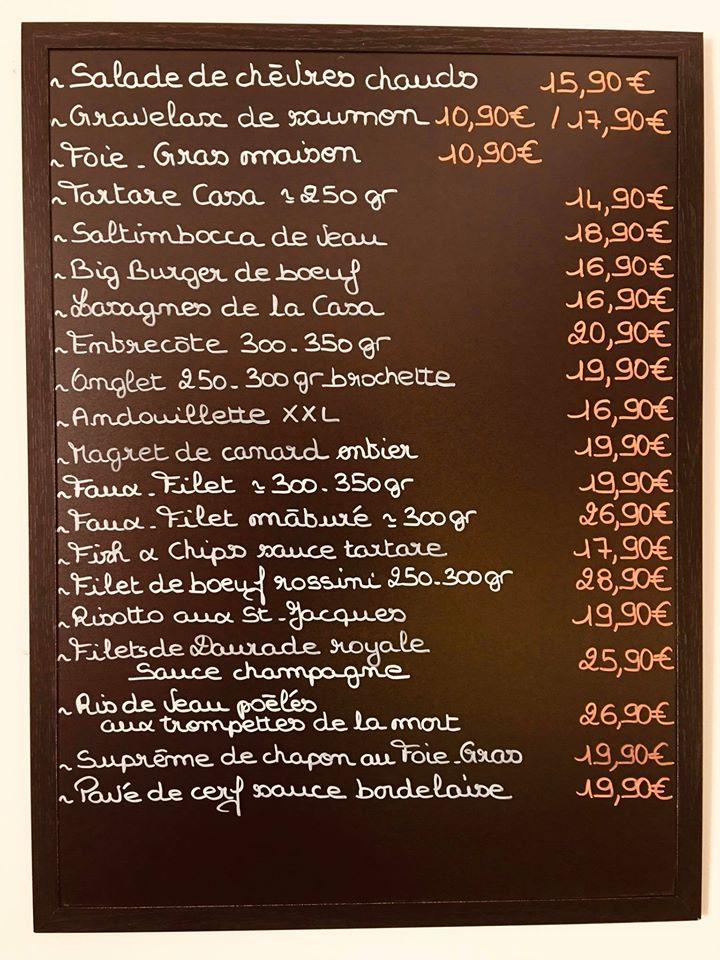 ~ Salade de chēvres chauds 15,90€
~ Gravelax de saumon 10,90€ / 17,90€
~ Foie-Gras maison 10,90€
~ Tartare Casa ≃250 gr 14,90€
~ Saltimbocca de veau 18,90€
~ Big Burger de boeuf 16,90€
~ Lasagnes de la Casa 16,90€
~ Entrecôte 300-350 gr 20,90€
~ Onglet 250-300 gr brochette 19,90€
~ Andouillette XXL 16,90€
~ Magret de canard entier 19,90€
~ Faux-Filet ≃ 300-350 gr 19,90€
~ Faux-Filet māturé ≃ 300 gr 26,90€
~ Fish & Chips sauce tartare 17,90€
~ Filet de boeuf rossini 250-300 gr 28,90€
~ Risotto aux St-Jacques 19,90€
~ Filets de Daurade royale
Sauce champagne 25,90€
~ Ris de veau poēlés
aux trompettes de la mort 26,90€
~ Suprēme de chapon au Foie-Gras 19,90€
~ Pavé de cerf sauce bordelaise 19,90€